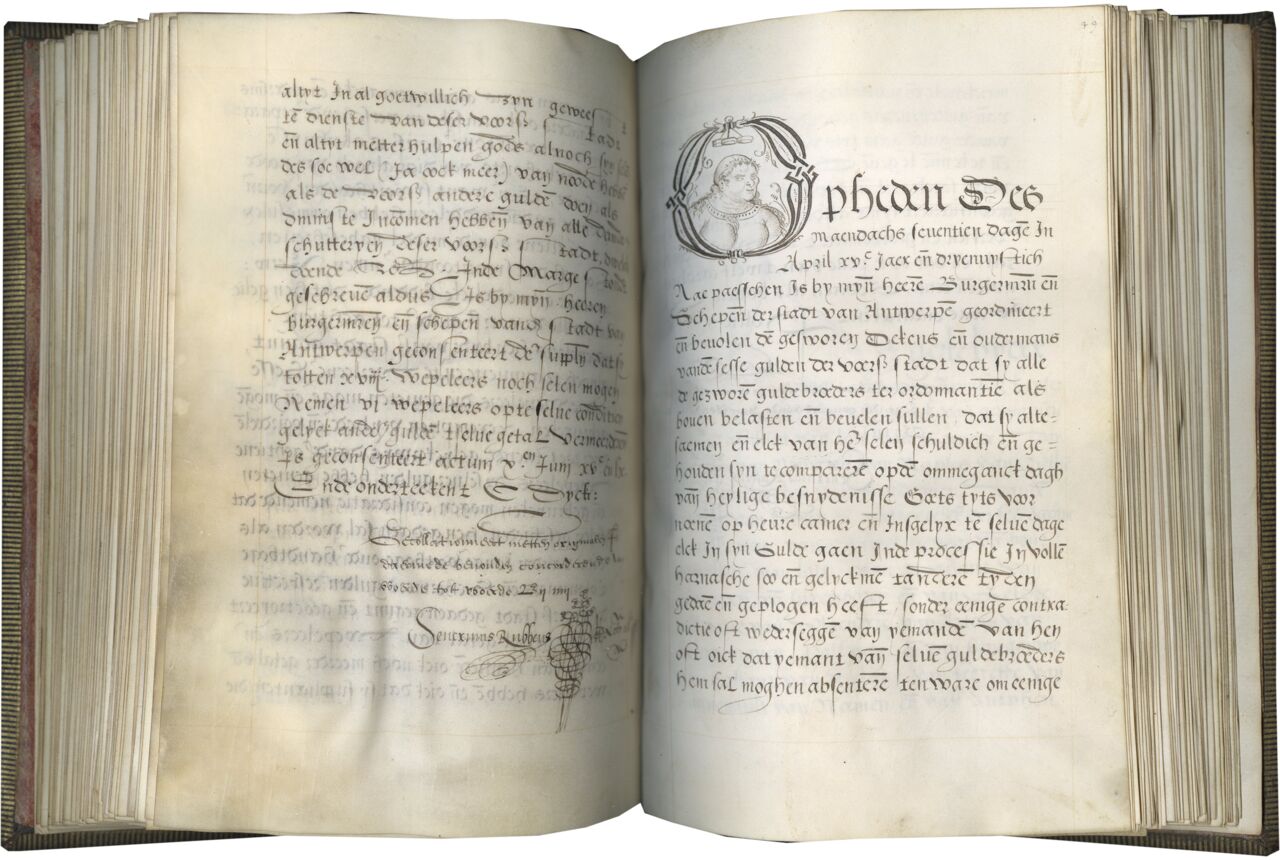 altyt In al goetwillich zyn gewees t
tē dienste van deser voorß stadt
eñ altyt metter hulpen gods alnoch syn
des soe wel (Ja oock meer) van noode hebb
als de voorß andere gulde doen als
dminste Incōmen hebbeñ van alle
schutteryen deser voorß stadt,
doende Inde Marge stont
geschreuē aldus Is by myn heeren
Burgermrēn eñ schepeñ vander stadt van
Antwerpen geconsenteert de supplñ dat sy
totten xviij wepeleers noch selen mogen
Nemen vi wepeleers op te selue conditien
gelyck ander gulde tselue getal vermeerderen
geconsenteert actum x.en Juny xvc
Ende onderteekent Dyck:
Gecollationeert metten originale
daermede beuonden concorderende
woorde tot woorde By my
Seuerinus Rubbens
49
Opheden Des
maendachs seuentien dagē In
April xv.c Jaer eñ dryenuystich
Nae paesschen Is by myñ heerē Burgermrñ eñ
Schepeñ der stadt van Antwerpē geordineert
eñ beuolen dē gesworen Dekens eñ oudermans
vandē sesse gulden der voorß stadt dat sy alle
de gezworē guldebroeders ter ordonnantie als
bouen belasten eñ beuelen sullen, dat sy alte-
saemen eñ elck van hē selen schuldich eñ ge-
houden syn te comparerē opdē ommeganck dagh
vañ heylige besnydenisse Goets tyts voor
noenē op heure camer eñ Insgelyx tē seluē dage
elck In syn Gulde gaen Inde processie In vollē
harnasche soo eñ gelyckmē tanderē tyden
gedaē eñ geplogen heeft, sonder eenige contra-
dictie oft wederseggē van yemandē van hen
oft oick dat yemant vañ seluē guldebroeders
hem sal moghen absenterē ten ware om eenige